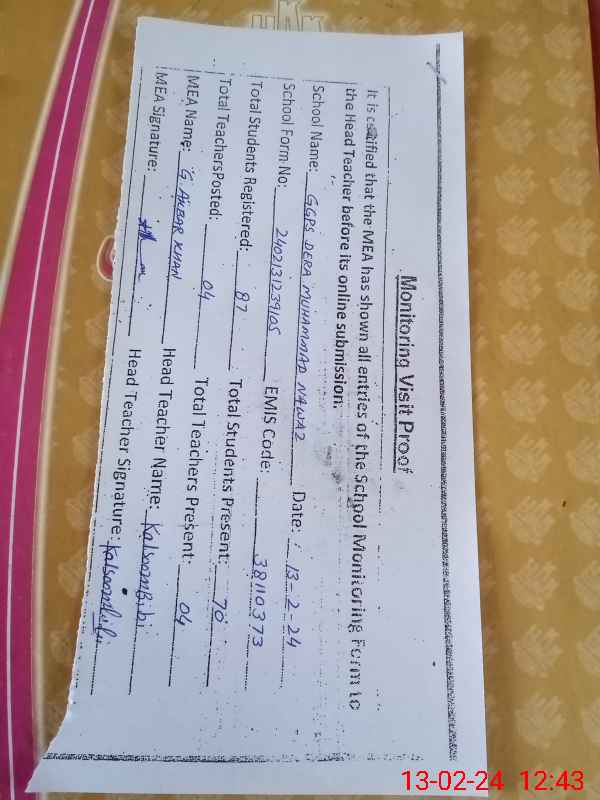 Monitoring Visit Proof
It is certified that the MEA has shown all entries of the School Monitoring Form to
the Head Teacher before its online submission.
School Name: GGPS DERA MUHAMMAD NAWAZ Date: 13-2-24
School Form No: 2402131239105 EMIS Code: 38110373
Total Students Registered: 87 Total Students Present: 70
Total TeachersPosted: 04 Total Teachers Present: 04
MEA Name: G. AKBAR KHAN Head Teacher Name: Kalsoom Bibi
MEA Signature: Head Teacher Signature: Kalsoom Bibi
13-02-24 12:43